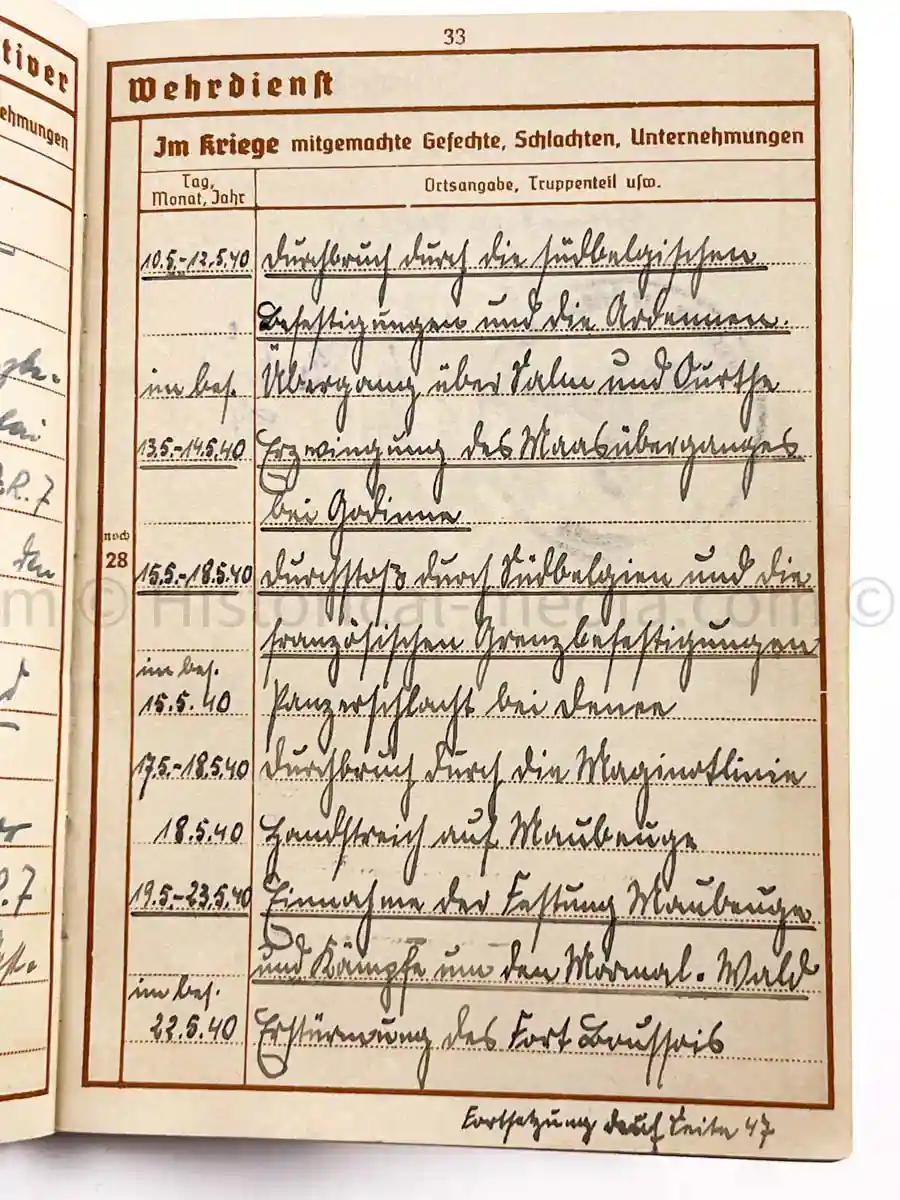 tiver
ehmungen
R. 7
den
33
Wehrdienst
Im Kriege mitgemachte Gefechte, Schlachten, Unternehmungen
Tag, Monat, Jahr
Ortsangabe, Truppenteil usw.
10.5.-12.5.40 Durchbruch durch die südbelgischen
Befestigungen und die Ardennen.
im bes. Übergang über Salm und Ourthe
13.5.-14.5.40 Erzwingung des Maasüberganges
bei Godinne
noch
28
15.5.-18.5.40 Durchstoß durch Südbelgien und die
französischen Grenzbefestigungen
im bes.
15.5.40 Panzerschlacht bei Denee
17.5.-18.5.40 Durchbruch durch die Maginotlinie
18.5.40 Handstreich auf Maubeuge
19.5.-23.5.40 Einnahme der Festung Maubeuge
und Kämpfe um den Mormal-Wald
im bes.
22.5.40 Erstürmung des Fort Boussois
Fortsetzung auf Seite 47
© Historical-media.com ©